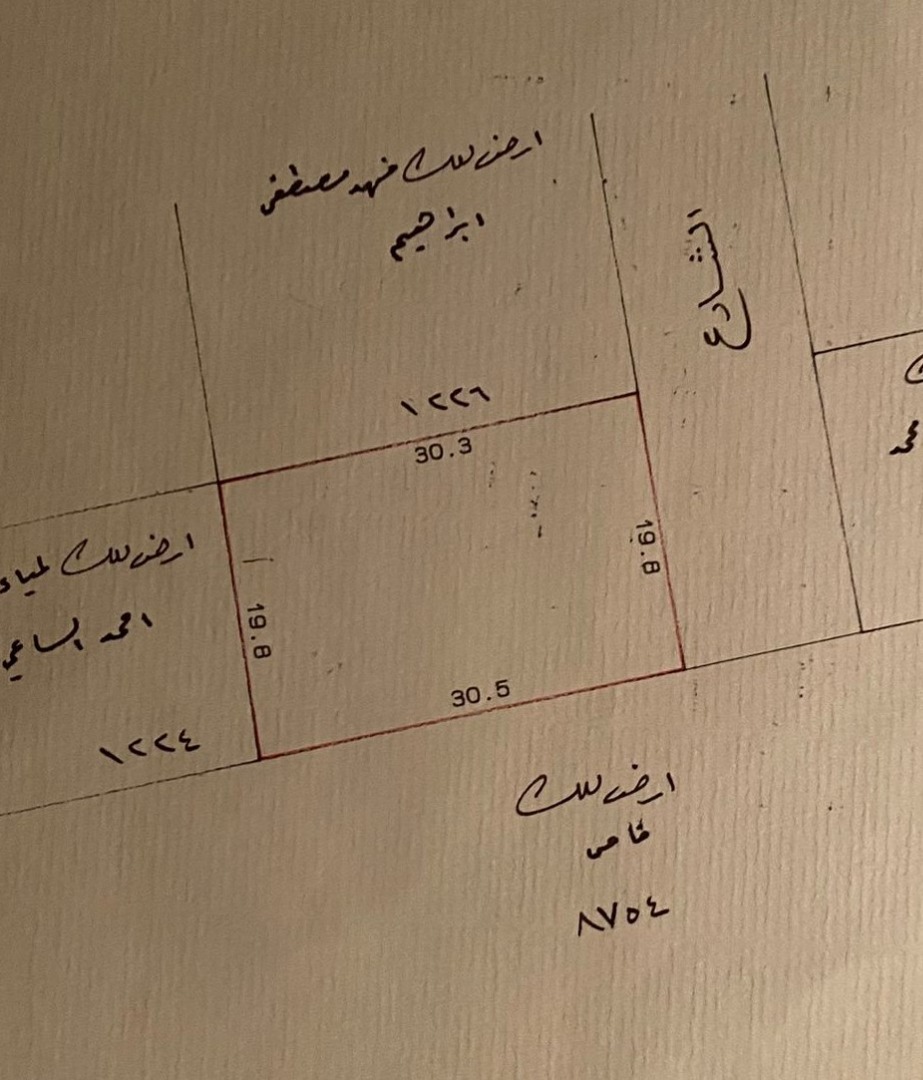 ارض ملك فهد مصطفى
ابراهيم
الشارع
١٢٢٦
30.3
ارض ملك لمياء
احمد الساعي
19.8
19.8
30.5
١٢٢٤
ارض ملك
خاص
٨٧٥٤